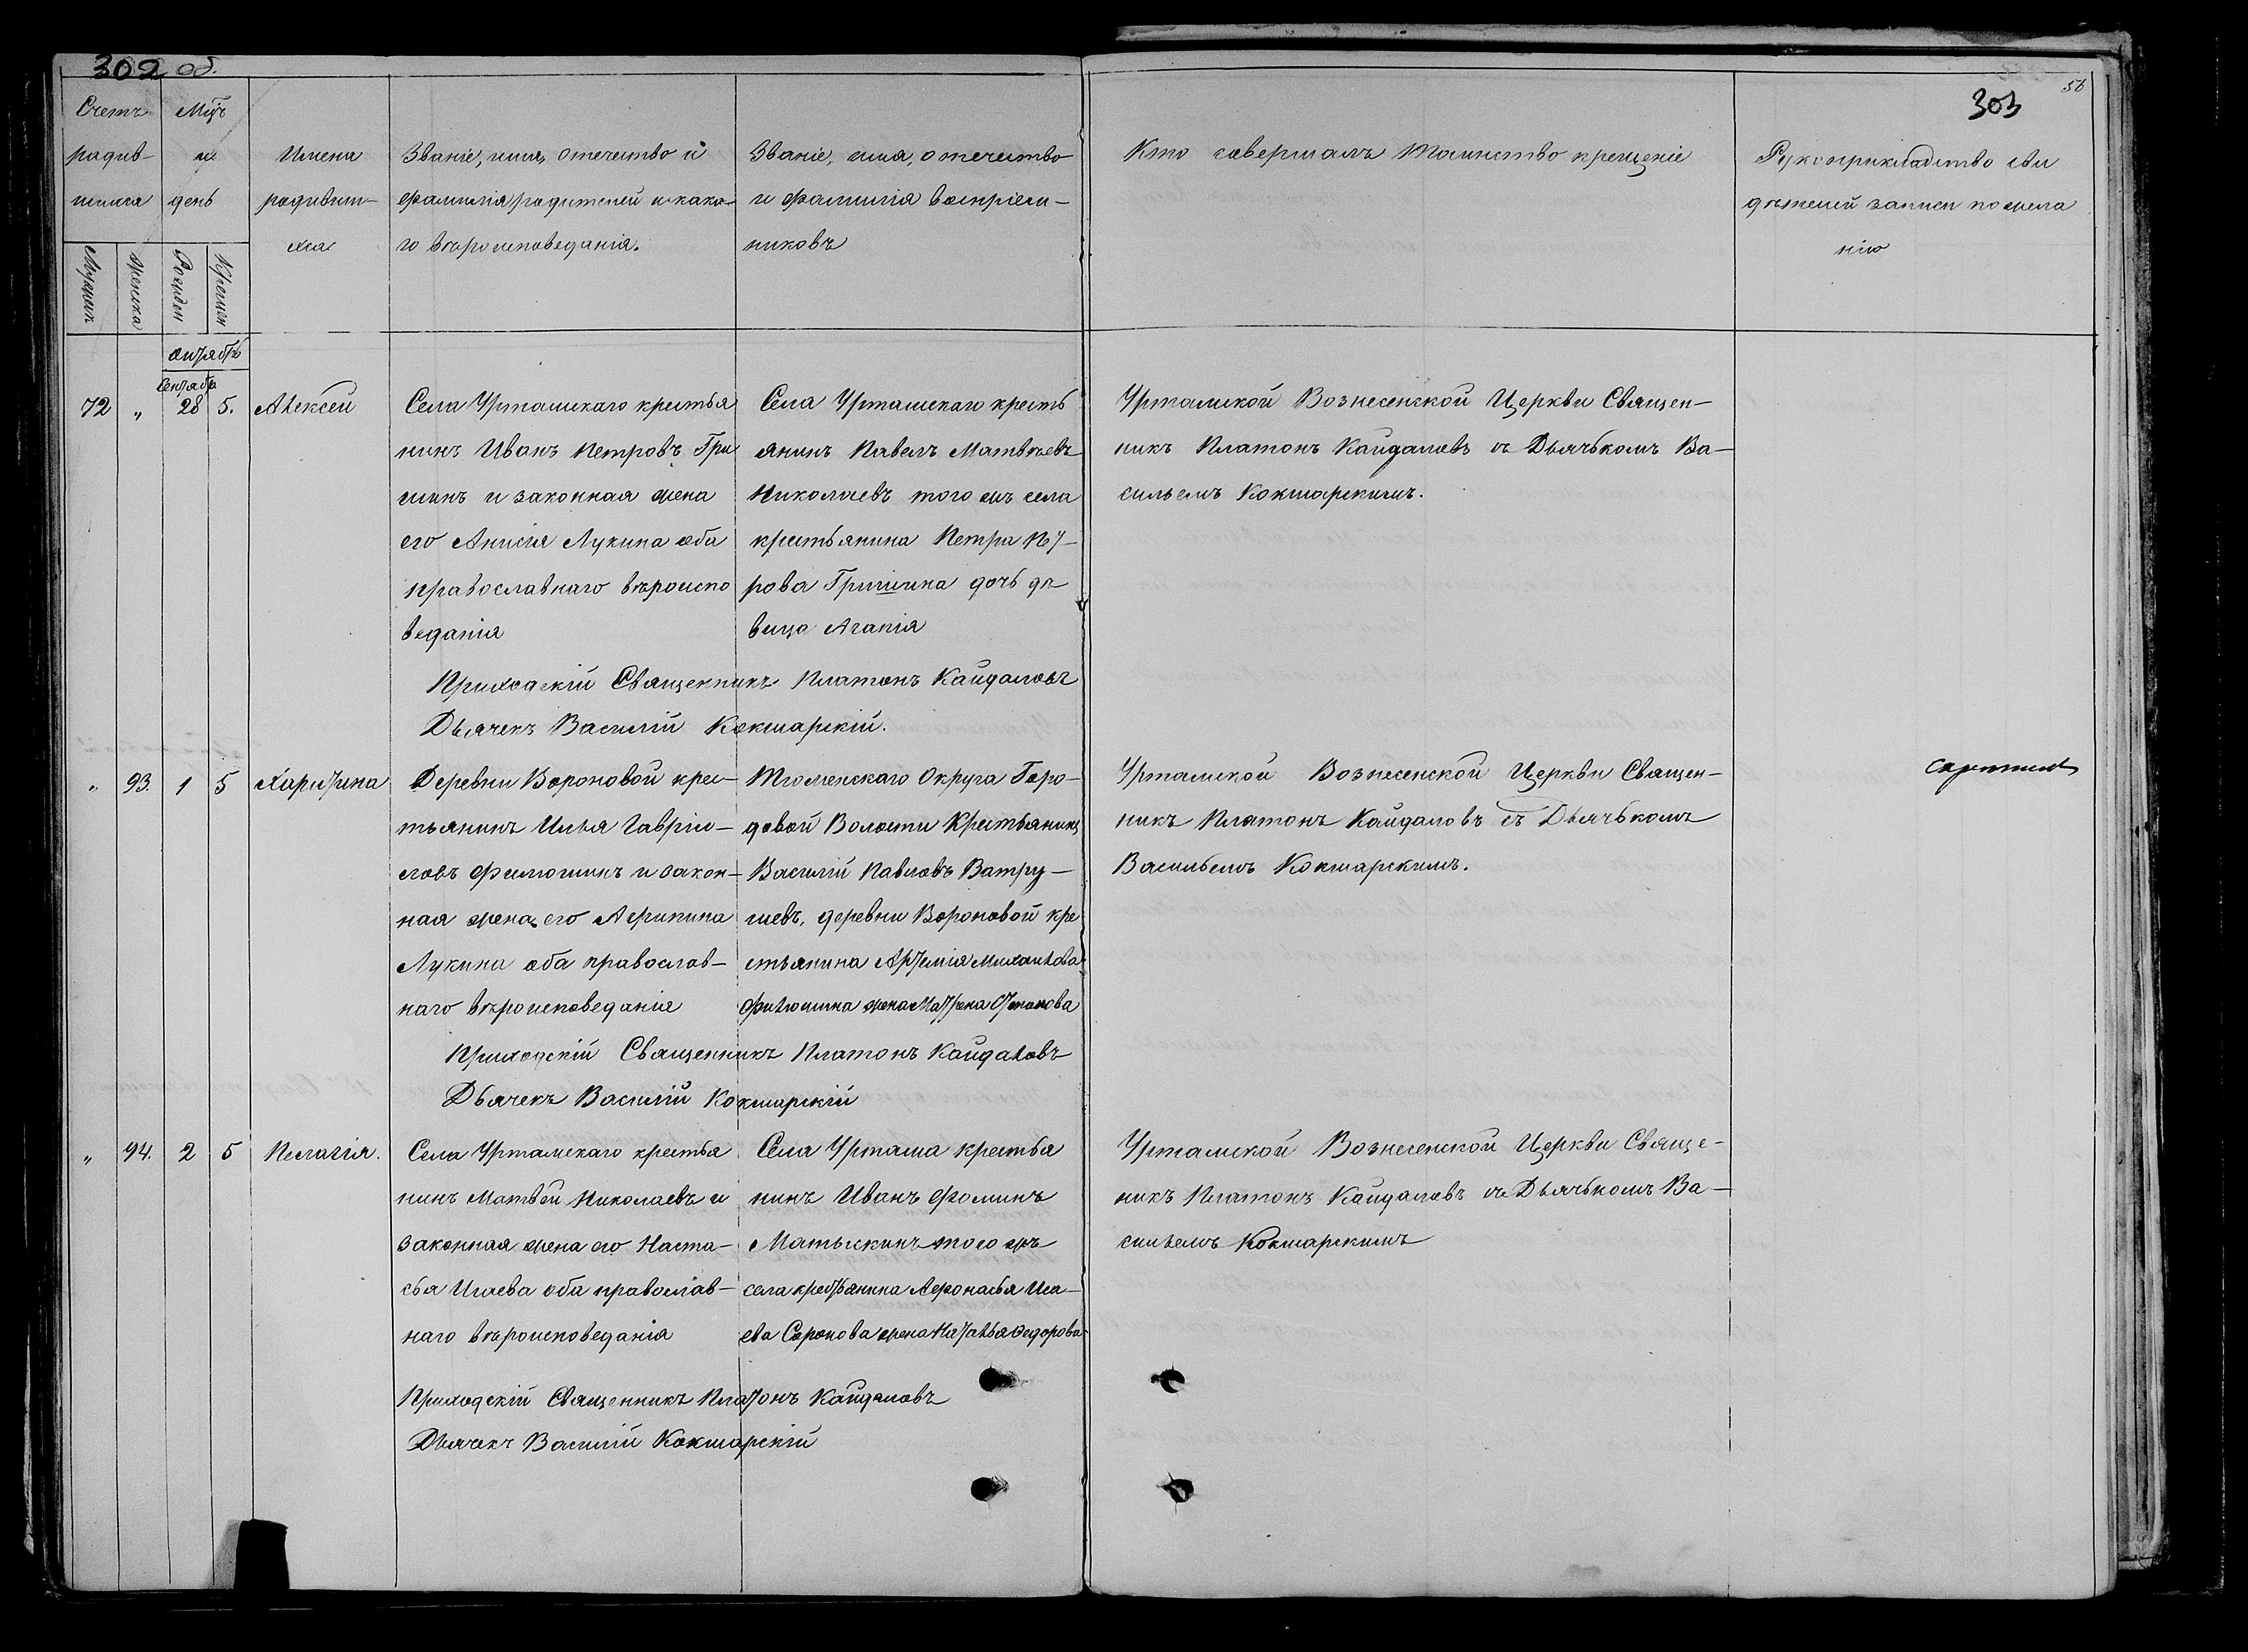 302 об.
56
303
Счетъ
родив-
шихся
Мужеск
Женска
Мцъ
и
день
Рожден
Крещен
Имена
родивши-
хся
Званіе, имя, отечество и
фамилія родителей и како-
го вѣроисповеданія.
Званіе, имя, отечество
и фамилія воспріем-
никовъ
Кто совершалъ таинство крещеніе
Рукоприкладство сви
дѣтелей записи по жела
нію
октябрь
Сентября
72 „ 28 5. Алексей
Села Уртамскаго крестья
нинъ Иванъ Петровъ Гри
шинъ и законная жена
его Анисія Лукина оба
православнаго вѣроиспо
веданія
Села Уртамскаго кресть
янинъ Павелъ Матвѣевъ
Николаевъ того жъ села
крестьянина Петра Пет-
рова Гришина дочь дѣ
вица Агапія
Уртамской Вознесенской Церкви Священ-
никъ Платонъ Кайдаловъ съ Дьячькомъ Ва-
сильемъ Кокшарскимъ.
Приходскій Священникъ Платонъ Кайдаловъ
Дьячекъ Василій Кокшарскій.
„ 93. 1 5 Харитина
Деревни Вороновой крес-
тьянинъ Илья Гаврии-
ловъ Филюшинъ и закон-
ная жена его Агрипина
Лукина оба православ-
наго вѣроисповеданія
Тюменскаго Округа Горо-
довой Волости Крестьянинъ
Василій Павловъ Ватру-
шевъ, деревни Вороновой кре
стьянина Артемія Михаилова
Филюшина жена Матрена Степанова
Уртамской Вознесенской Церкви Священ-
никъ Платонъ Кайдаловъ съ Дьячькомъ
Васильемъ Кокшарскимъ.
Приходскій Священникъ Платонъ Кайдаловъ
Дьячекъ Василій Кокшарскій
„ 94. 2 5 Пелагія.
Села Уртамскаго крестья
нинъ Матвѣй Николаевъ и
законная жена его Наста-
сья Исаева оба православ-
наго вѣроисповеданія
Села Уртама крестья
нинъ Иванъ Фоминъ
Матыскинъ того жъ
села крестьянина Афонасья Иса-
ева Сорокова жена Наталья Федорова
Уртамской Вознесенской Церкви Свяще-
никъ Платонъ Кайдаловъ съ Дьячькомъ Ва-
сильемъ Кокшарскимъ
Приходскій Священникъ Платонъ Кайдаловъ
Дьячекъ Василій Кокшарскій